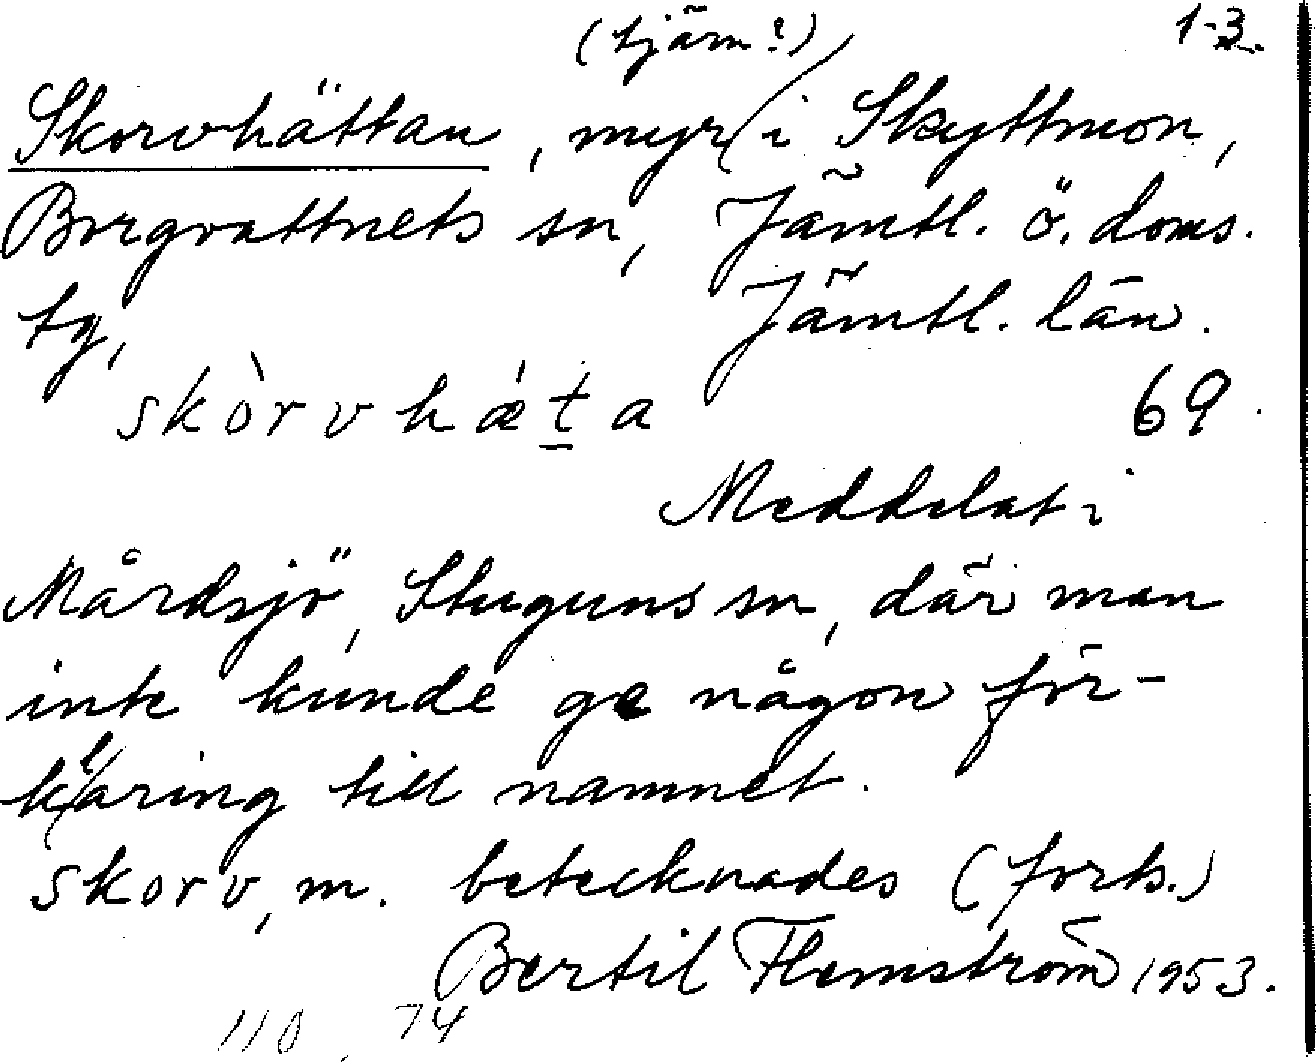 (tjärn?) 1-3.
Skorvhättan, myr i Skyttmon,
Borgvattnets sn, Jämtl. ö. doms.
tg, Jämtl. län.
skòrvhǽt̲a 69.
Meddelat i
Mårdsjö, Stuguns sn, där man
inte kunde ge någon för-
klaring till namnet.
skorv, m. betecknades (forts.)
Bertil Flemström 1953.
110. 74